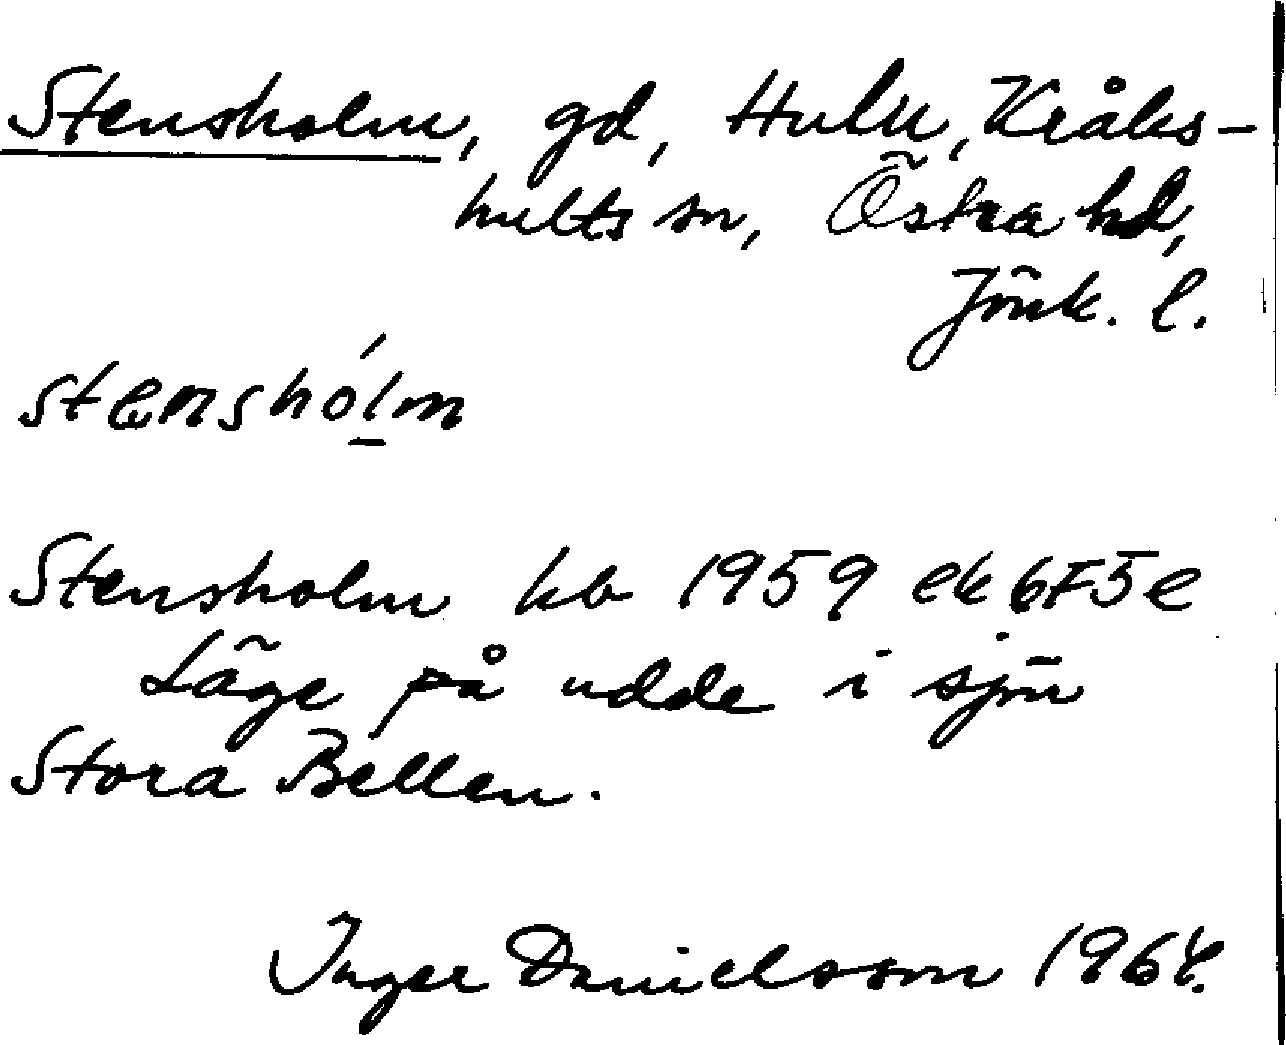 Stensholm, gd, Hulu, Kråks-
hults sn, Östra hd,
Jönk. l.
stenshólm
Stensholm kb 1959 ek 6F5e
Läge på udde i sjön
Stora Bellen.
Inger Danielsson 1964.